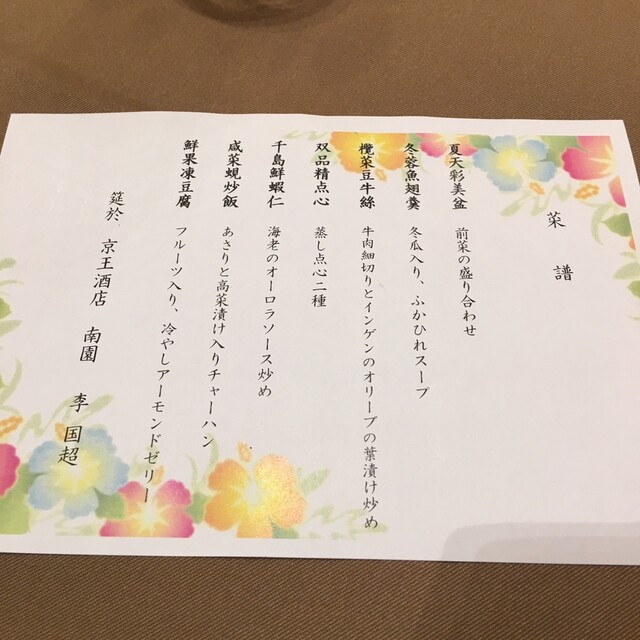 菜譜
夏天彩美盆　前菜の盛り合わせ
冬蓉魚翅羹　冬瓜入り、ふかひれスープ
欖菜豆牛絲　牛肉細切りとインゲンのオリーブの葉漬け炒め
双品精点心　蒸し点心二種
千島鮮蝦仁　海老のオーロラソース炒め
咸菜蜆炒飯　あさりと高菜漬け入りチャーハン
鮮果凍豆腐　フルーツ入り、冷やしアーモンドゼリー
筵於　京王酒店　南園　李　国超